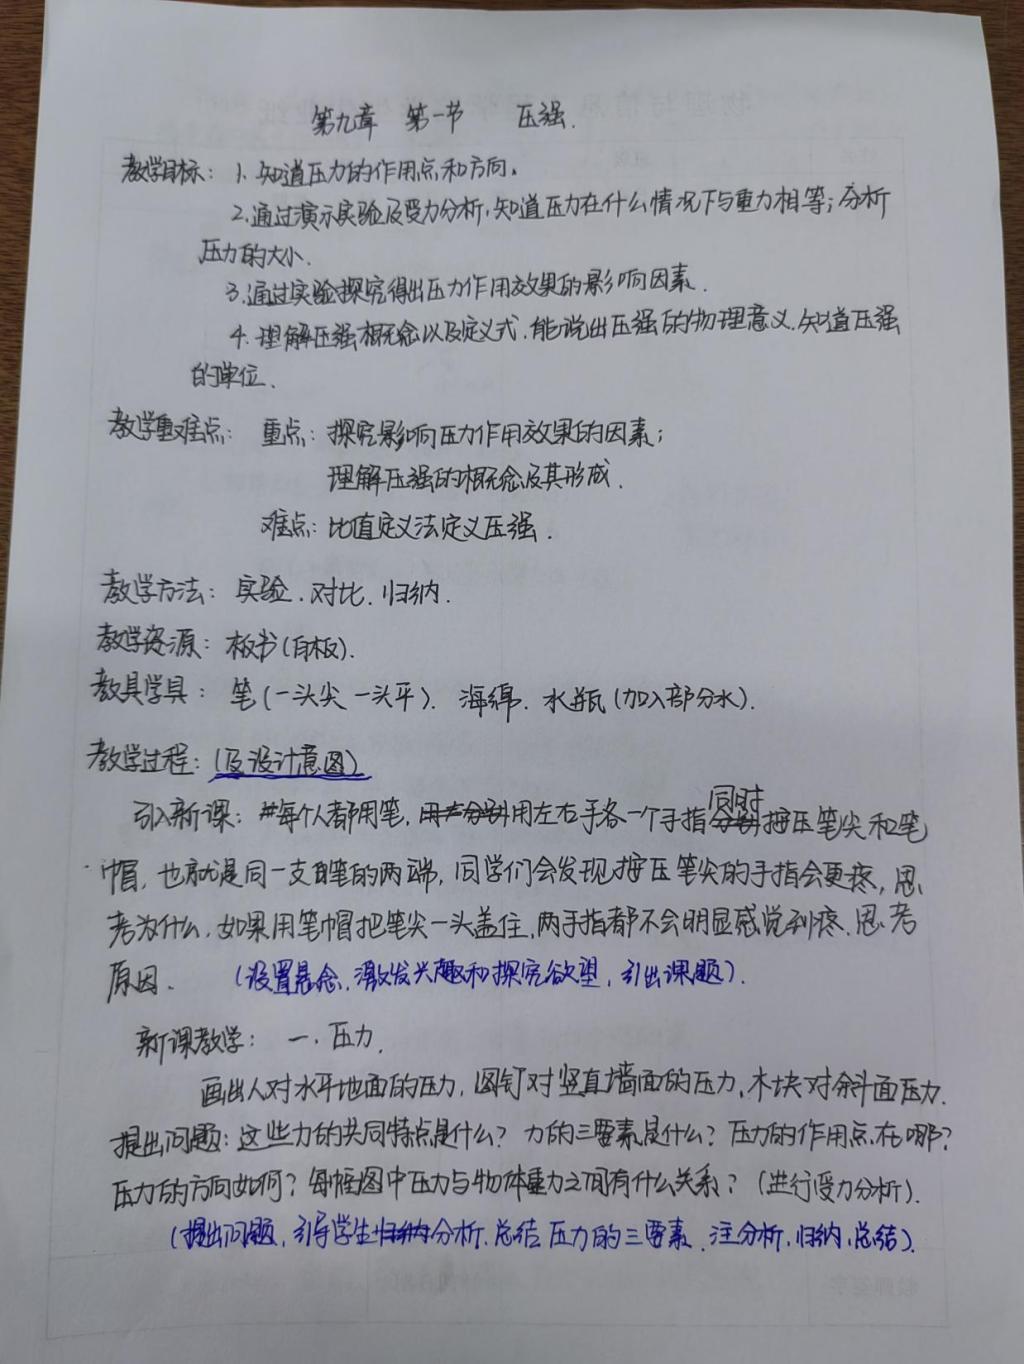 第九章 第一节 压强.
教学目标：1. 知道压力的作用点和方向.
2. 通过演示实验及受力分析,知道压力在什么情况下与重力相等；分析
压力的大小.
3. 通过实验探究得出压力作用效果的影响因素.
4. 理解压强概念以及定义式.能说出压强的物理意义.知道压强
的单位.
教学重难点：重点：探究影响压力作用效果的因素；
理解压强的概念及其形成.
难点：比值定义法定义压强.
教学方法：实验.对比.归纳.
教学资源：板书(白板).
教具学具：笔(一头尖 一头平). 海绵. 水瓶(加入部分水).
教学过程：(及设计意图)
引入新课：每个人都用笔,用左右手各一个手指同时按压笔尖和笔
帽,也就是同一支笔的两端,同学们会发现按压笔尖的手指会更疼,思
考为什么.如果用笔帽把笔尖一头盖住,两手指都不会明显感觉到疼.思考
原因. (设置悬念.激发兴趣和探究欲望,引出课题).
新课教学：一.压力.
画出人对水平地面的压力,图钉对竖直墙面的压力,木块对斜面压力.
提出问题：这些力的共同特点是什么？力的三要素是什么？压力的作用点在哪？
压力的方向如何？每幅图中压力与物体重力之间有什么关系？(进行受力分析).
(提出问题,引导学生分析.总结压力的三要素.注分析,归纳,总结).